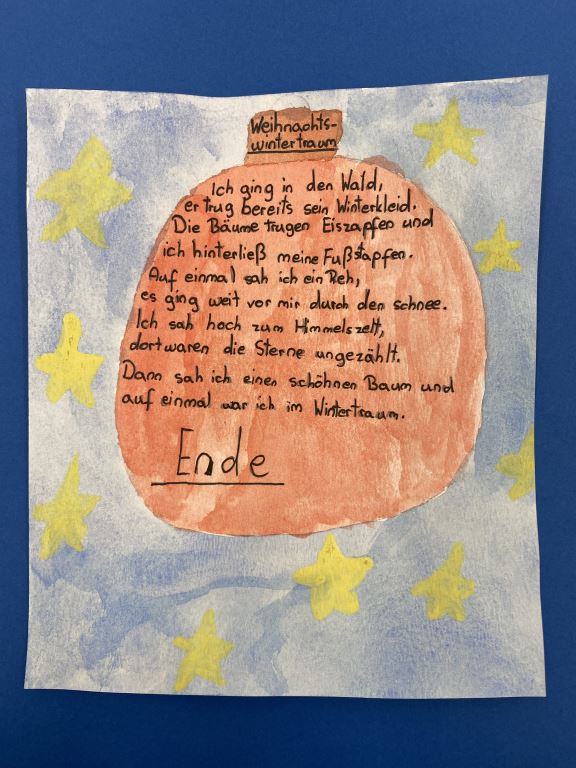 Weihnachts-
wintertraum
Ich ging in den Wald,
er trug bereits sein Winterkleid.
Die Bäume trugen Eiszapfen und
ich hinterließ meine Fußstapfen.
Auf einmal sah ich ein Reh,
es ging weit vor mir durch den schnee.
Ich sah hoch zum Himmelszelt,
dort waren die Sterne ungezählt.
Dann sah ich einen schöhnen Baum und
auf einmal war ich im Wintertraum.
Ende